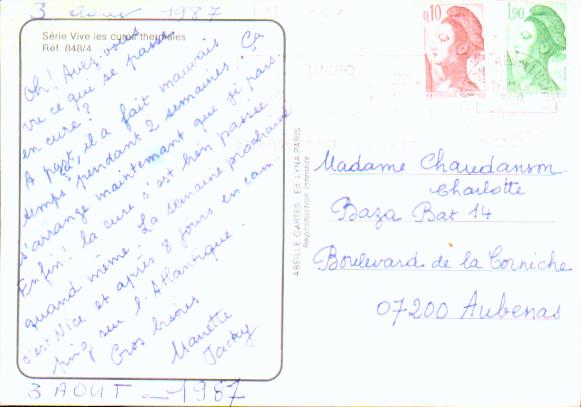 3 août 1987
Série Vive les cures thermales
Réf. 848/4
Oh! Avez-vous
vu ce que se passe
en cure?
A part ça, il a fait mauvais
temps pendant 2 semaines. Ça
s'arrange maintenant que je pars.
Enfin! la cure s'est bien passée
quand même. La semaine prochaine
c'est Nice et après 8 jours en cam
ping sur l'Atlantique.
Gros bisous
Manette
Jacky
3 AOUT 1987
ABEILLE CARTES - Ed. LYNA-PARIS
Reproduction interdite
0,10
1,90
Madame Chaudanson
Charlotte
Baza Bat 14
Boulevard de la Corniche
07200 Aubenas